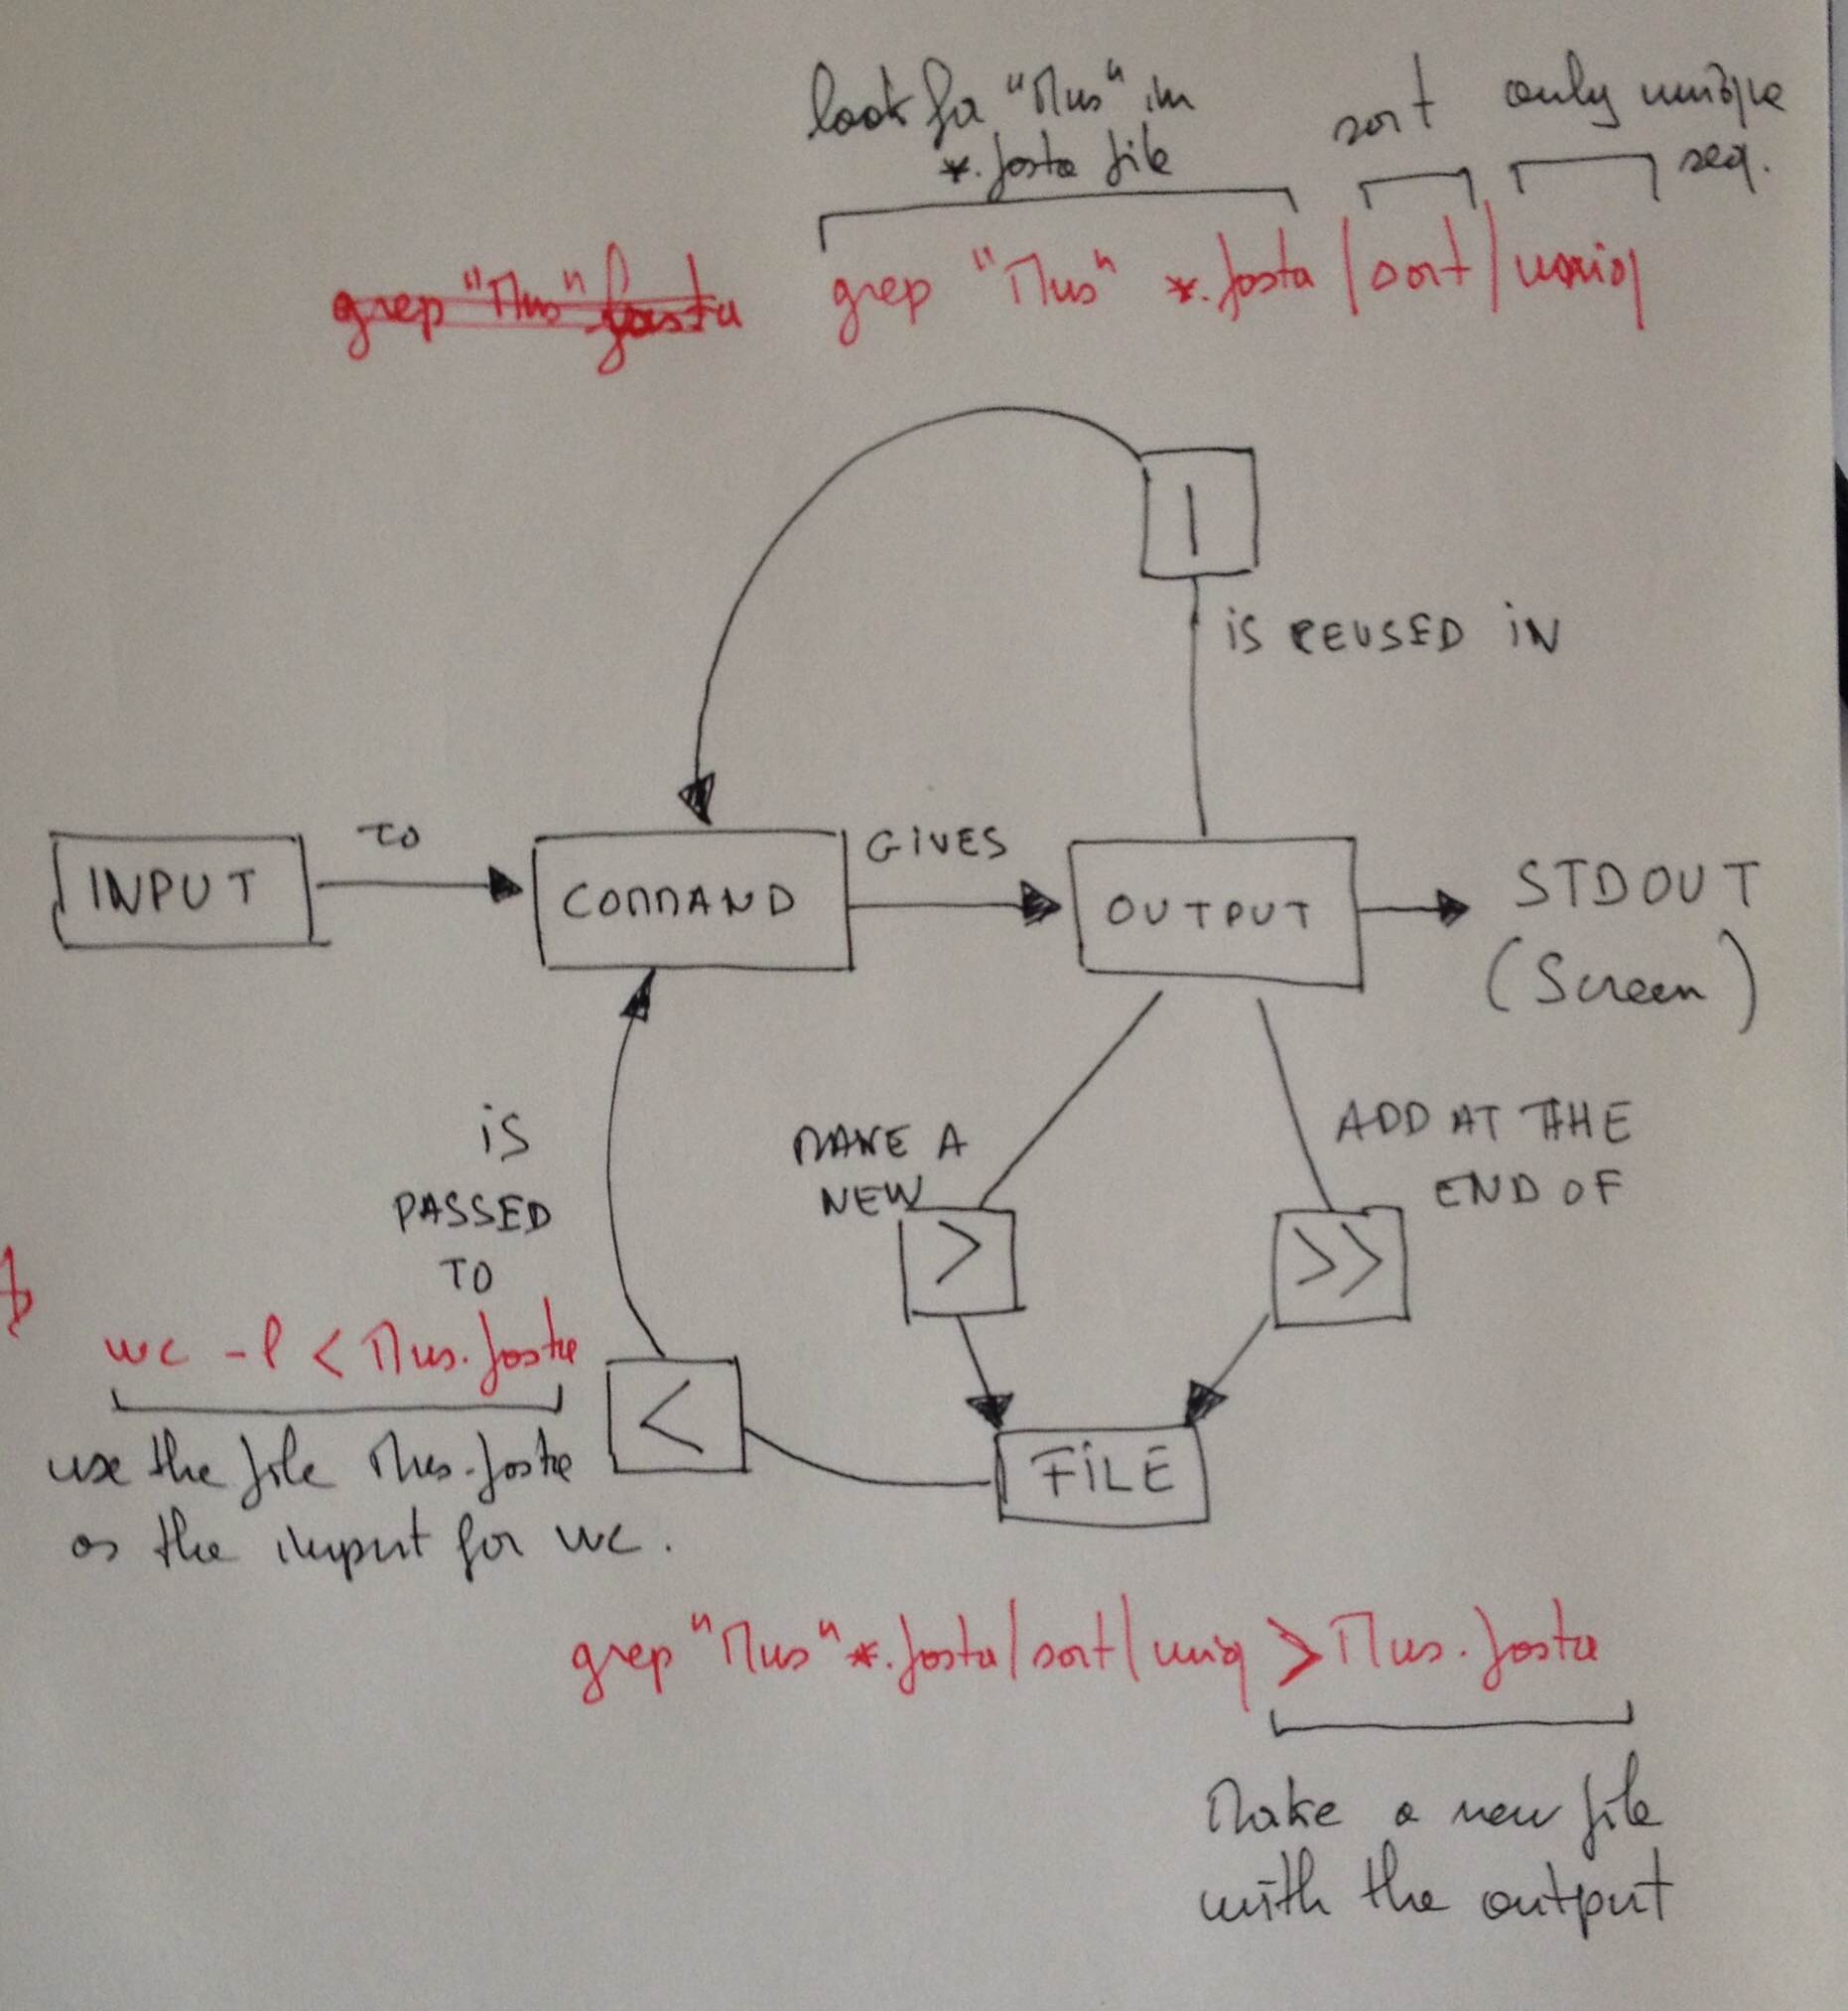 look for "Mus" in
*.fasta file
sort
only unique
seq.
grep "Mus" fasta
grep "Mus" *.fasta | sort | uniq
|
is REUSED iN
INPUT
TO
COMMAND
GIVES
OUTPUT
STDOUT
(Screen)
iS
PASSED
TO
MAKE A
NEW
>
ADD AT THE
END OF
>>
wc -l < Mus.fasta
<
use the file Mus.fasta
as the input for wc.
FiLE
grep "Mus" *.fasta | sort | uniq > Mus.fasta
Make a new file
with the output